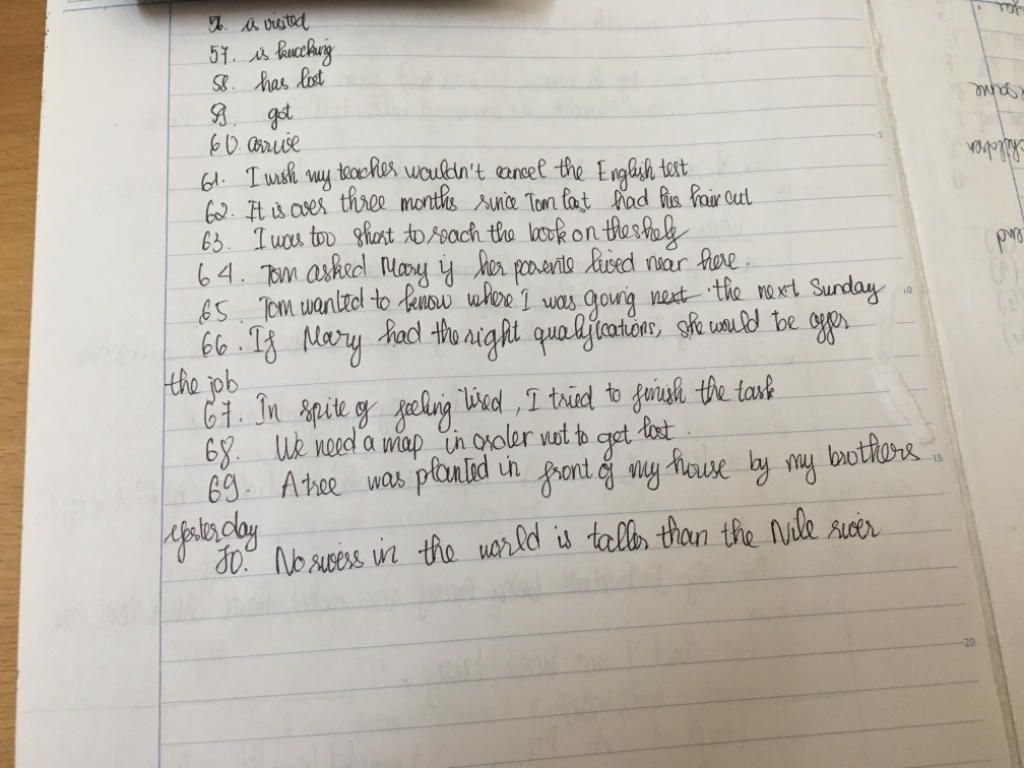 56. is visited
57. is knocking
58. has lost
59. got
60. arrive
61. I wish my teacher wouldn't cancel the English test
62. It is over three months since Tom last had his hair cut
63. I was too short to reach the book on the shelf
64. Tom asked Mary if her parents lived near here.
65. Tom wanted to know where I was going next the next Sunday
66. If Mary had the right qualifications, she would be offer
the job
67. In spite of feeling tired, I tried to finish the task
68. We need a map in order not to get lost.
69. A tree was planted in front of my house by my brothers
yesterday
70. No rivers in the world is taller than the Nile river
5
10
15
20